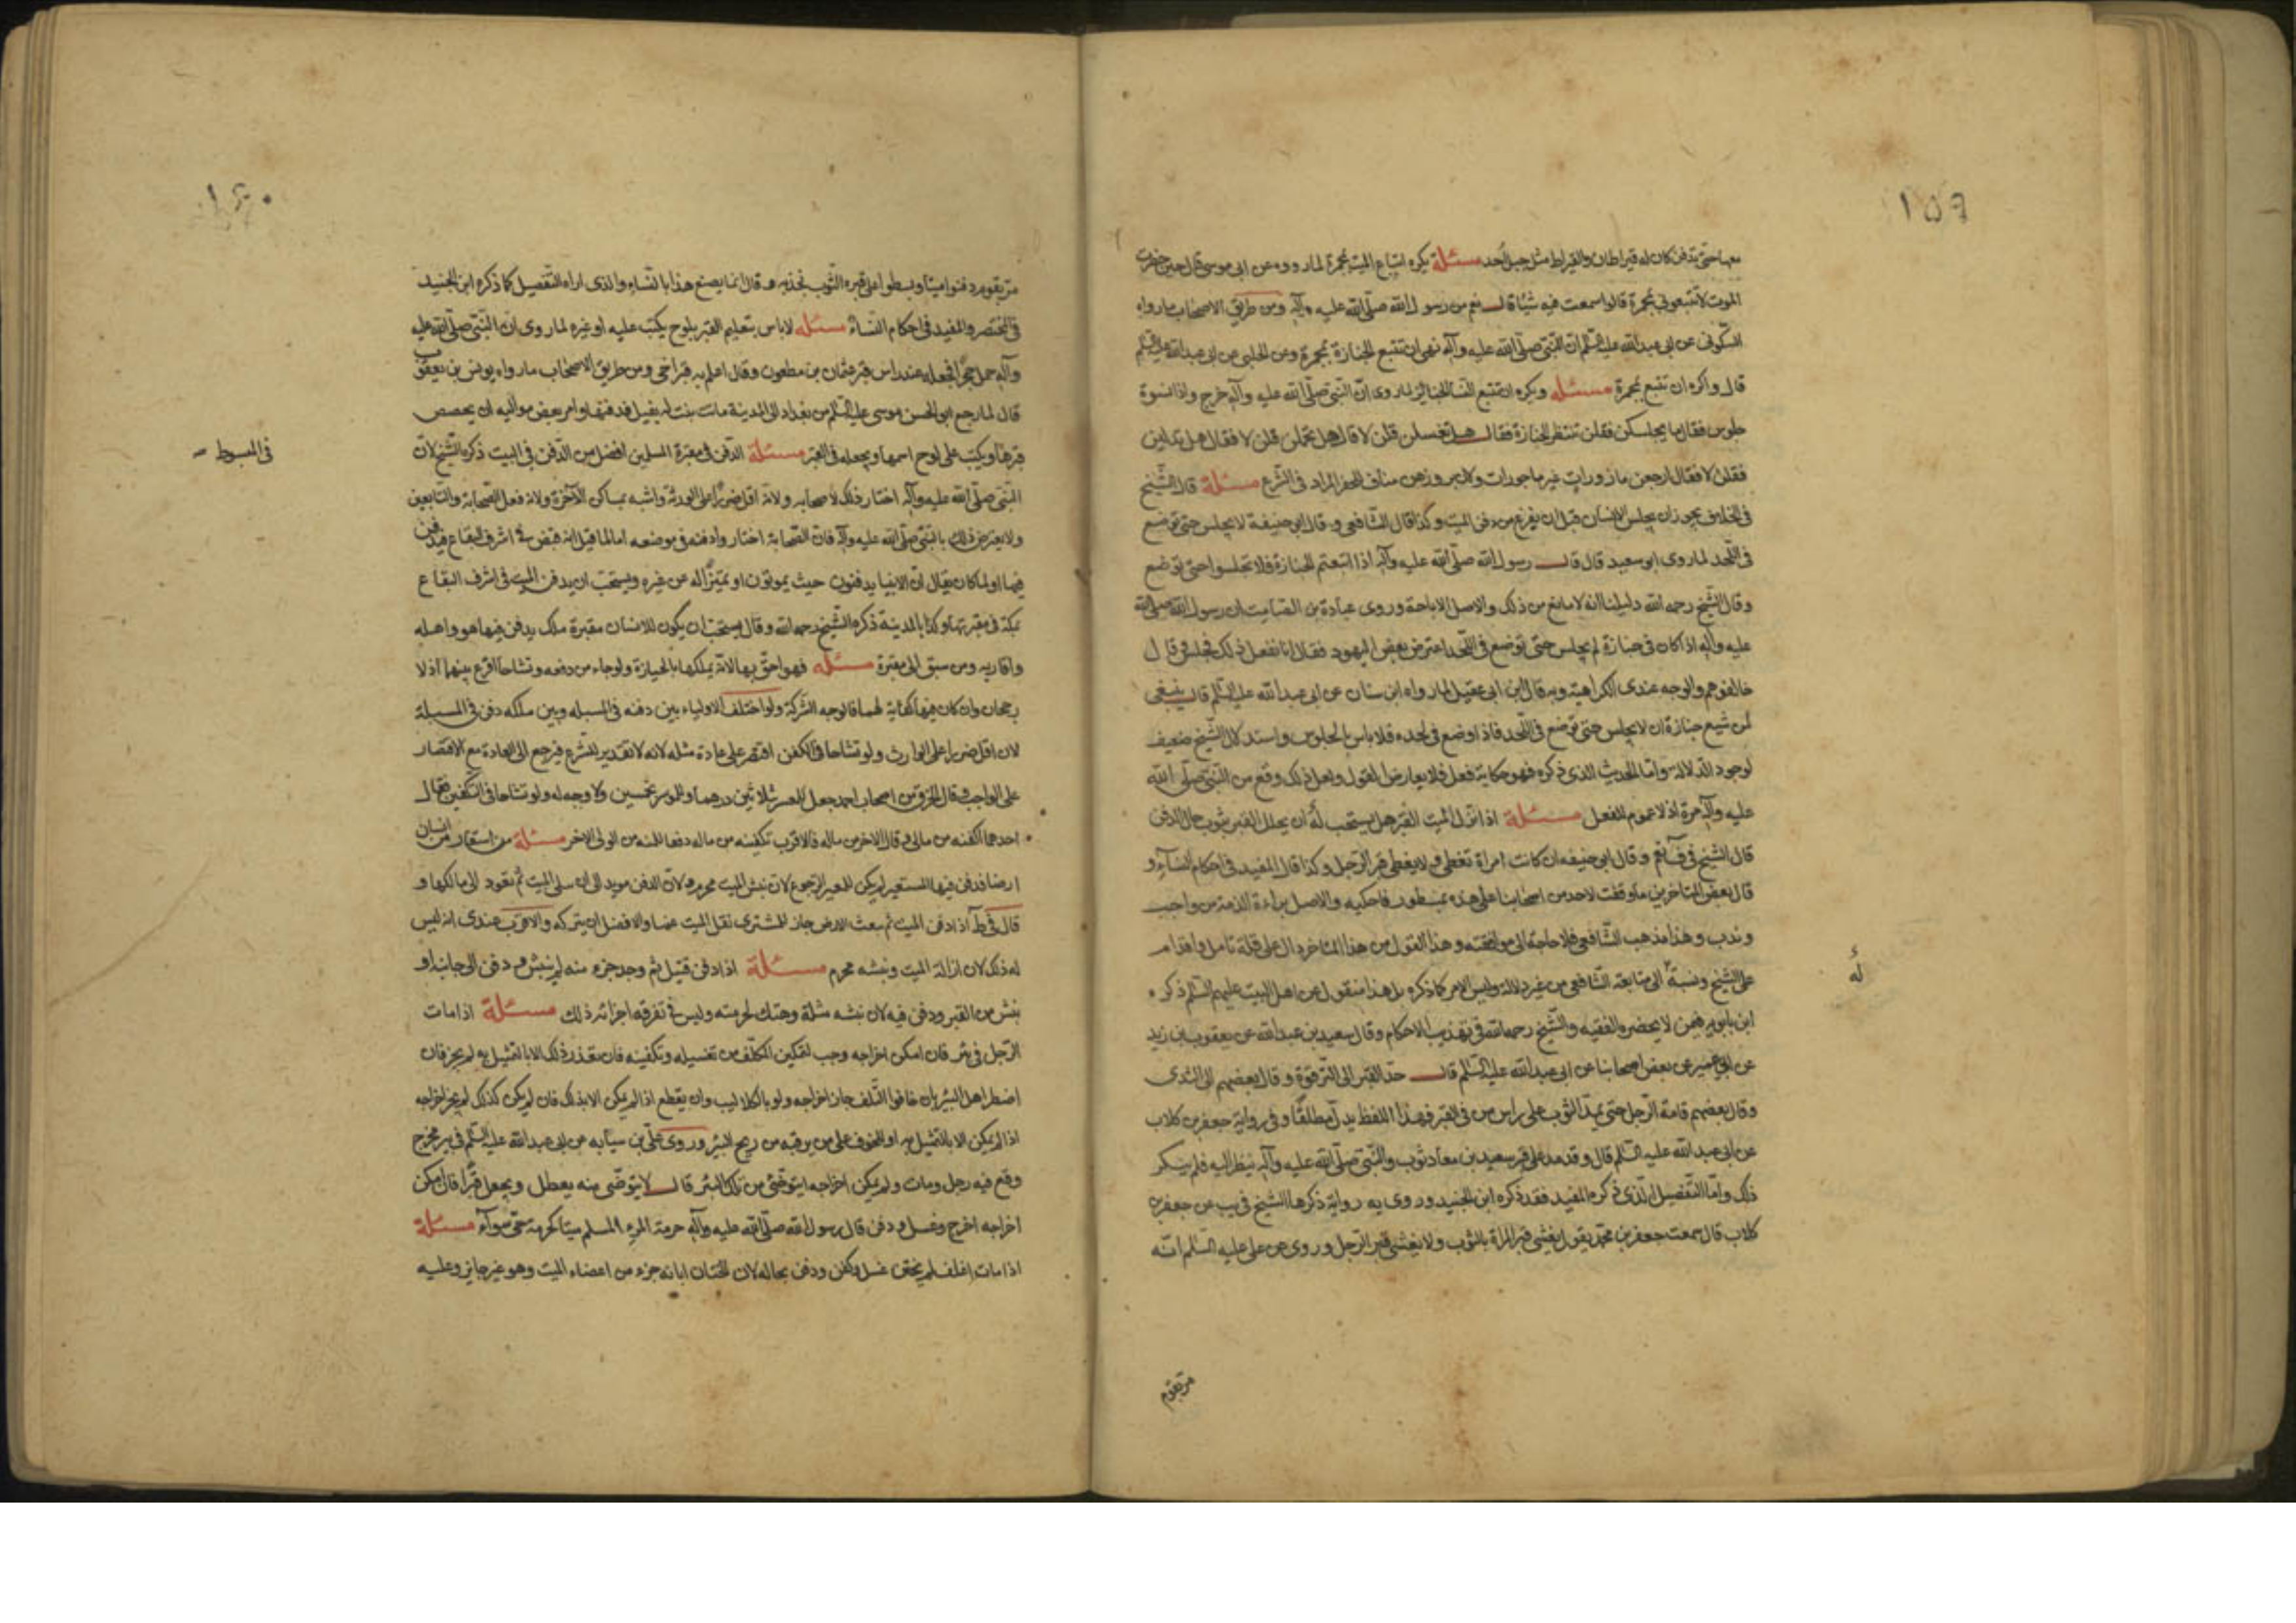 ١٥٩
معها حتى تدفن كان له قيراطان والقيراط مثل جبل أحد مسئلة يكره اتباع الميت بمجمرة لما رووه عن ابى موسى قال حين حضرت
الموت لا تتبعونى بمجرة قالوا سمعت فيه شيئا قال نعم من رسول الله صلى الله عليه وآله ومن طريق الاصحاب ما رواه
السكونى عن ابى عبدالله عليه السلم ان النبى صلى الله عليه وآله نهى ان تتبع الجنازة بمجرة وعن الحلبى عن ابى عبدالله عليه السلم
قال واكره ان تتبع بمجمرة مسئلة ويكره ان تتبع النساء الجنائز لما روى ان النبى صلى الله عليه وآله خرج واذا نسوة
جلوس فقال ما يجلسكن فقلن ننتظر الجنازة فقال هل تغسلن قلن لا قال هل تحملن قلن لا فقال هل تدلين
فقلن لا فقال ارجعن مازورات غير ماجورات ولان بروزهن مناف للخفر المراد فى الشرع مسئلة قال الشيخ
فى الخلاف يجوز ان يجلس الانسان قبل ان يفرغ من دفن الميت وكذا قال الشافعى وقال ابو حنيفة لا يجلس حتى توضع
فى اللحد لما روى ابو سعيد قال قال رسول الله صلى الله عليه وآله اذا اتبعتم الجنازة فلا تجلسوا حتى توضع
وقال الشيخ رحمه الله دليلنا انه لا مانع من ذلك والاصل الاباحة وروى عبادة بن الصامت ان رسول الله صلى الله
عليه وآله اذا كان فى جنازة لم يجلس حتى توضع فى اللحد اعترض بعض اليهود فقال انا نفعل ذلك فجلس وقال
خالفوهم والوجه عندى الكراهية وبه قال ابن ابى عقيل لما رواه ابن سنان عن ابى عبد الله عليه السلم قال ينبغى
لمن شيع جنازة ان لا يجلس حتى توضع فى اللحد فاذا وضع فى لحده فلا باس بالجلوس واستدلال الشيخ ضعيف
لوجود الدلالة واما الحديث الذى ذكره فهو حكاية فعل فلا يعارض القول ولعل ذلك وقع من النبى صلى الله
عليه وآله مرة اذ لا عموم للفعل مسئلة اذا انزل الميت القبر هل يستحب له ان يجلل القبر بثوب حال الدفن
قال الشيخ فى ف نعم وقال ابو حنيفه ان كانت امراة تغطى ولا يغطى قبر الرجل وكذا قال المفيد فى احكام النسآء و
قال بعض المتاخرين ما وقفت لاحد من اصحابنا على هذه بمسطور فاحكيه والاصل براءة الذمة من واجب
وندب وهذا مذهب الشافعى فلا حاجة الى موافقته وهذا القول من هذا المتاخر دال على قلة تامل واقدام
على الشيخ ونسبة الى متابعة الشافعى من غير دلالة وليس الامر كما ذكره بل هذا منقول عن اهل البيت عليهم السلم ذكره
له
ابن بابويه فيمن لا يحضره الفقيه والشيخ رحمه الله فى تهذيب الاحكام وقال سعيد بن عبد الله عن يعقوب بن يزيد
عن ابن ابى عمير عن بعض اصحابنا عن ابى عبدالله عليه السلم قال حد القبر الى الترقوة وقال بعضهم الى الثدى
وقال بعضهم قامة الرجل حتى يمد الثوب على راس من فى القبر فهذا اللفظ يدل مطلقا وفى رواية جعفر بن كلاب
عن ابى عبد الله عليه السلم قال وقد مد على قبر سعيد بن معاد ثوب والنبى صلى الله عليه وآله ينظر اليه فلم ينكر
ذلك واما التفصيل الذى ذكره المفيد فقد ذكره ابن الجنيد وروى به رواية ذكرها الشيخ فى يب عن جعفر بن
كلاب قال سمعت جعفر بن محمد يقول يغشى قبر المراة بالثوب ولا يغشى قبر الرجل وروى عن على عليه السلم انه
مر بقوم
١٦٠
مر بقوم دفنوا ميتا وبسطوا على قبره الثوب فجذبه وقال انما يصنع هذا بالنساء والذى اراه التفصيل كما ذكره ابن الجنيد
فى المختصر والمفيد فى احكام النسآء مسئله لا باس بتعليم القبر بلوح يكتب عليه او غيره لما روى ان النبى صلى الله عليه
وآله حمل حجرا فجعله عند راس قبر عثمان بن مظعون وقال اعلم به قبر اخى ومن طريق الاصحاب ما رواه يونس بن يعقوب
قال لما رجع ابو الحسن موسى عليه السلم من بغداد الى المدينة ماتت بنت له بفيد فدفنها وامر بعض مواليه ان يجصص
قبرها ويكتب على لوح اسمها ويجعله فى القبر مسئلة الدفن فى مقبرة المسلمين افضل من الدفن فى البيت ذكره الشيخ لان
فى المبسوط
النبى صلى الله عليه وآله اختار ذلك لاصحابه ولانه اقل ضررا على الورثة واشبه بمساكن الآخرة ولانه فعل الصحابة والتابعين
ولا يعترض ذلك بالنبى صلى الله عليه وآله فان الصحابة اختاروا دفنه فى موضعه اما لما قيل انه قبض فى اشرف البقاع فيدفن
فيها او لما كان يقال ان الانبيا يدفنون حيث يموتون او تميزا له عن غيره ويستحب ان يدفن الميت فى اشرف البقاع
بمكة فى مقبرتها وكذا بالمدينة ذكره الشيخ رحمه الله وقال يستحب ان يكون للانسان مقبرة ملك يدفن فيها هو واهله
واقاربه ومن سبق الى مقبرة مسئله فهو احق بها لانه يملكها بالحيازة ولو جاء من دفعه وتشاحا اقرع بينهما اذ لا
رجحان وان كان فيها كفاية لهما فالوجه الشركة ولو اختلف الاولياء بين دفنه فى المسبله وبين ملكه دفن فى المسبلة
لان اقل ضررا على الوارث ولو تشاحا فى الكفن اقتصر على عادة مثله لانه لا تقدير للشرع فيرجع الى العادة مع الاقتصار
على الواجب وقال الخرقى من اصحاب احمد جعل للمعسر بثلاثين درهما وللموسر بخمسين ولا وجه له ولو تشاحا فى التكفين فقال
احدهما اكفنه من مالى وقال الاخر من ماله فالاقرب تكفينه من ماله دفعا للمنه من الولى الاخر مسئلة من استعار من انسان
ارضا فدفن فيها المستعير لم يكن للمعير الرجوع لان نبش الميت محرم ولان الدفن مويد الى ان يبلى الميت ثم تعود الى مالكها و
قال فى ط اذا دفن الميت ثم بيعت الارض جاز للمشترى نقل الميت عنها والافضل ان يتركه والاقرب عندى انه ليس
له ذلك لان ازالة الميت ونبشه محرم مسئلة اذا دفن قتيل ثم وجد جزء منه لم ينبش ودفن الى جانبه او
نبش من القبر ودفن فيه لان نبشه مثلة وهتك لحرمته وليس فى تفرقه اجزائه ذلك مسئلة اذا مات
الرجل فى بئر فان امكن اخراجه وجب لتمكين المكلف من تغسيله وتكفينه فان تعذر ذلك الا بالتمثيل به لم يجز فان
اضطر اهل البئر بان خافوا التلف جاز اخراجه ولو بالكلاليب وان يقطع اذا لم يمكن الا بذلك فان لم يكن كذلك لم يجز اخراجه
اذا لم يمكن الا بالتمثيل به او الخوف على من يرقبه من ريح البئر وروى على بن سيابه عن ابى عبد الله عليه السلم فى بير مخرج
وقع فيه رجل ومات ولم يمكن اخراجه ايتوضئ من تلك البئر قال لا يتوضى منه يعطل ويجعل قبرا فان امكن
اخراجه اخرج وغسل ودفن قال رسول الله صلى الله عليه وآله حرمة المرء المسلم ميتا كحرمته حى سوآء مسئلة
اذا مات اغلف لم يختن غسل وكفن ودفن بحاله لان الختان ابانه جزء من اعضاء الميت وهو غير جايز وعليه